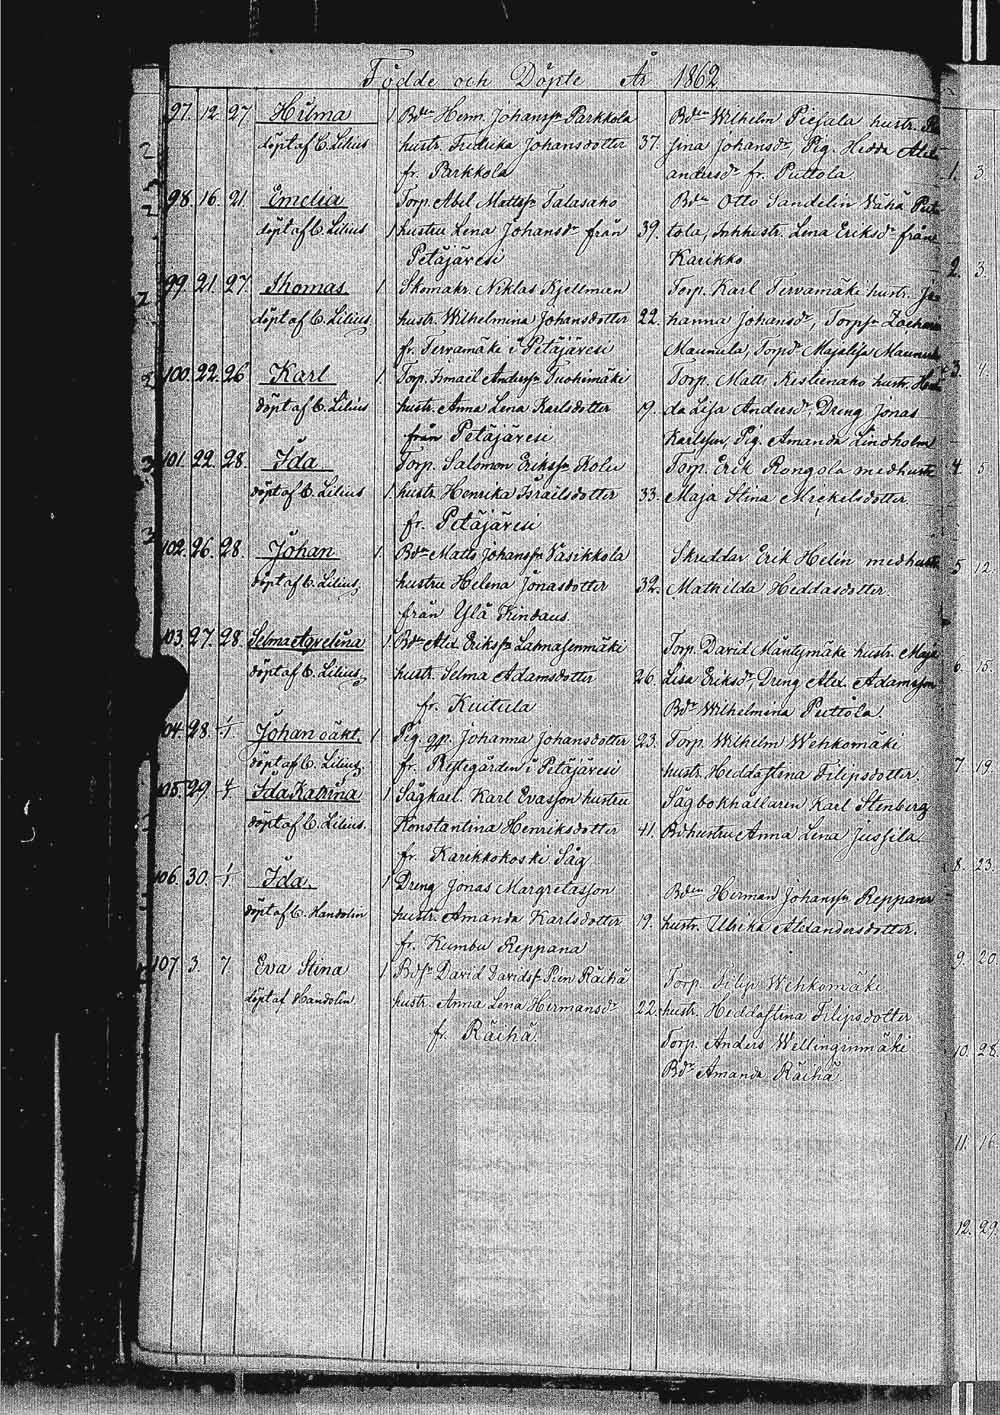 Födde och Döpte År 1862.
97. 12. 27. Hilma 1 Bdn Herm. Johanss Parkkola Bdn Wilhelm Piesala hustr.
döpt af C. Lilius hustr. Fredrika Johansdotter 37. Johansdr Pig. Hedda Alex
fr. Parkkola andersdr fr. Puttola.
98. 16. 21. Emelia Torp. Abel Mattss Talasaho Bdn Otto Sandelin Vähä Put
döpt af C. Lilius 1 hustru Lena Johansdr från 39. tola, Inhhustr. Lena Eriksdr från
Petäjävesi Karikko
99. 21. 27. Thomas 1. Skomakr. Niklas Kjellman Torp. Karl Tervamäke hustr. Jo
döpt af C. Lilius hustr. Wilhelmina Johansdotter 22. hanna Johansdr,
fr. Tervamäki i Petäjävesi Maunula, Torpdr Majalisa Maunula
100. 22. 26. Karl 1. Torp. Ismael Anderss Tuohimäke Torp. Matts Kestienaho hustr. Hed
döpt af C. Lilius hustr. Anna Lena Karlsdotter 19. da Lisa Andersdr, Dreng Jonas
från Petäjävesi Karlsson, Pig. Amanda Lindholm
101. 22. 28. Ida Torp. Salomon Erikss Kolu Torp. Erik Rongola med hustr
döpt af C. Lilius 1. hustr. Henrika Israilsdotter 33. Maja Stina Mickelsdotter
fr. Petäjävesi
102. 26. 28. Johan 1. Bdn Matts Johanss Vasikkola Skreddar Erik Helin med hustr
döpt af C. Lilius hustru Helena Jonasdotter 32. Mathilda Heddasdotter.
från Ylä Kindaus.
103. 27. 28. Selma Aqvelina 1. Bdn Alex Erikss Lamasenmäki Torp. David Mäntymäke hustr. Maja
döpt af C. Lilius hustr. Selma Adamsdotter 26. Lisa Eriksdr, Dreng Alex. Adamsson
fr. Kuitula Bdr Wilhelmina Puttola.
104. 28. 1/1 Johan oäkt. 1 Pig. Johanna Johansdotter 23. Torp. Wilhelm Wehkomäki
döpt af C. Lilius fr. Prestegården i Petäjävesi hustr. Hedda Stina Filipsdotter.
105. 29. 4/1 Ida Katrina 1 Sågkarl. Karl Evasson hustru Sågbokhållaren Karl Stenberg
döpt af C. Lilius. Konstantina Henriksdotter 41. Bdhustru Anna Lena Jussila.
fr. Karikkokoski Såg
106. 30. 1/1 Ida. 1 Dreng Jonas Margretasson Bdn Herman Johanss Reppana
döpt af C. Handolin hustr. Amanda Karlsdotter 19. hustr. Ulrika Alexandersdotter.
fr. Kumbu Reppana
107. 3. 7. Eva Stina 1 Bds David Davids Pien Räihä Torp. Filip Wehkomäki
döpt af Handolin hustr. Anna Lena Hermansdr 22. hustr. Hedda Stina Filipsdotter
fr. Räihä. Torp. Anders Wellingrinmäki
Bdr Amanda Räihä
1. 3
2. 3.
3. 4
4. 5
5. 12.
6. 15.
7. 19.
8. 23.
9. 20.
10. 28.
11. 16
12. 29.